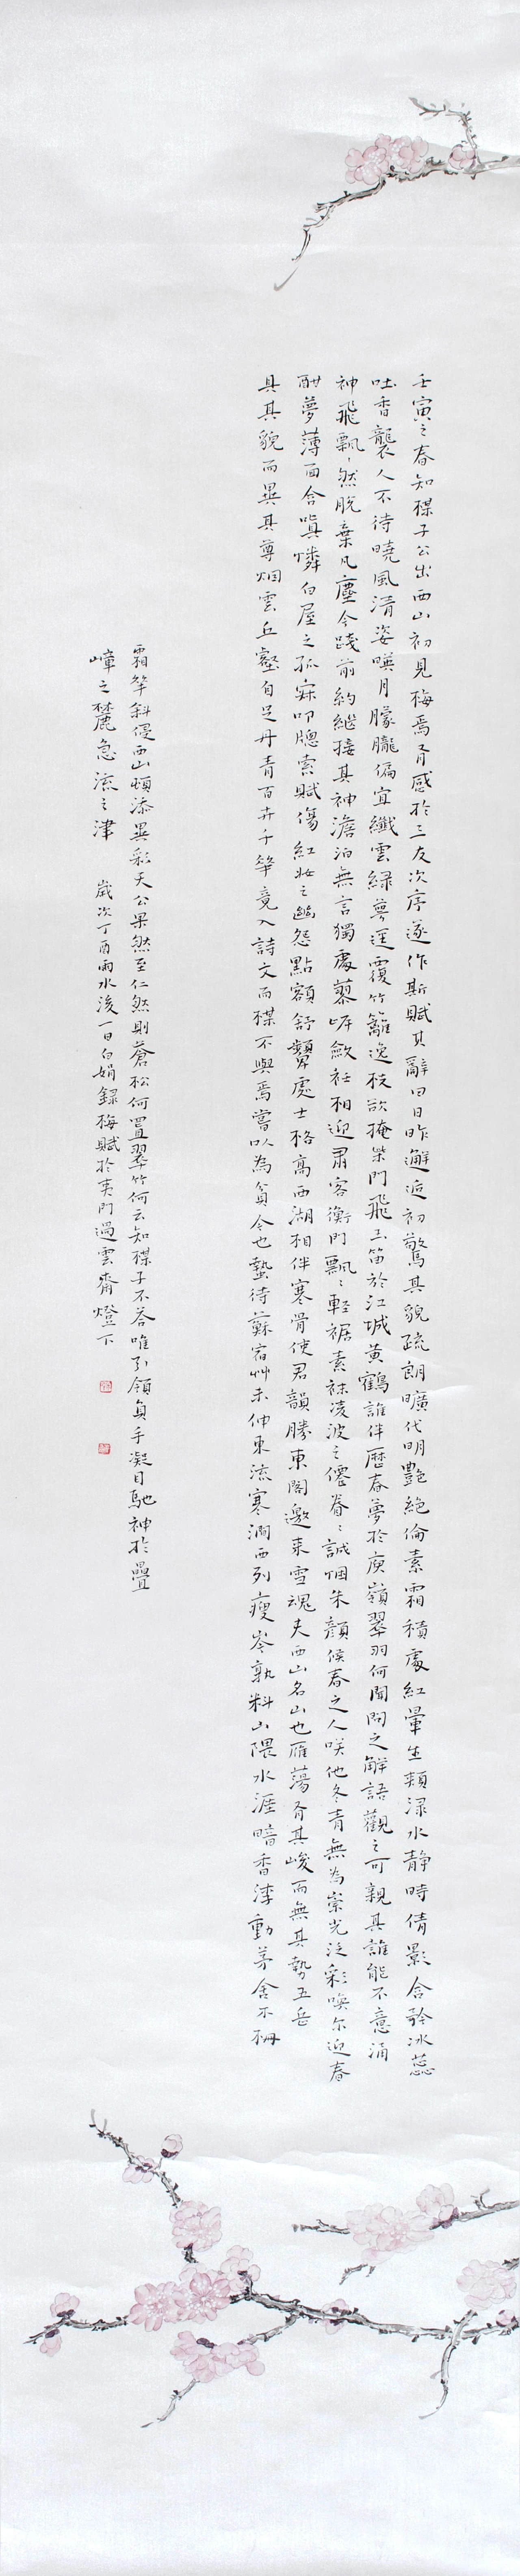 壬寅之春知稼子公出西山初見梅焉有感於三友次序遂作斯賦其辭曰日昨邂逅初驚其貌疏朗曠代明艷絕倫素霜積處紅暈生頰渌水靜時倩影含矜冰蕊
吐香襲人不待曉風清姿暎月朦朧偏宜纖雲綠萼逕覆竹籬逸枝欲掩柴門飛玉笛於江城黃鶴誰伴歷春夢於庾嶺翠羽何聞問之解語觀之可親其誰能不意涌
神飛飄飄然脫棄凡塵今踐前約繼接其神澹泊無言獨處蓼岸斂衽相迎肅客衡門飄飄輕裾素袜凌波之僊眷眷誠悃朱顏候春之人咲他冬青無為崇光泛彩喚尔迎春
酣夢薄面含嗔憐白屋之孤寂叩牕索賦傷紅妝之幽怨點額舒顰處士格高西湖相伴寒骨使君韻勝東閣邀来雪魂夫西山名山也雁蕩有其峻而無其勢五岳
具其貌而異其尊烟雲丘壑自足丹青百卉千華竟入詩文而稼不與焉嘗以為貧令也蟄待蘇宿艸未伸東流寒澗西列瘦岑孰料山隈水涯暗香浮動茅舍不枏
霜華斜侵西山頓添異彩天公果然至仁然則蒼松何置翠竹何云知稼子不答唯引領負手凝目馳神於疊
嶂之麓急流之津 歲次丁酉雨水後一日白娟錄梅賦於夷門過雲齋燈下